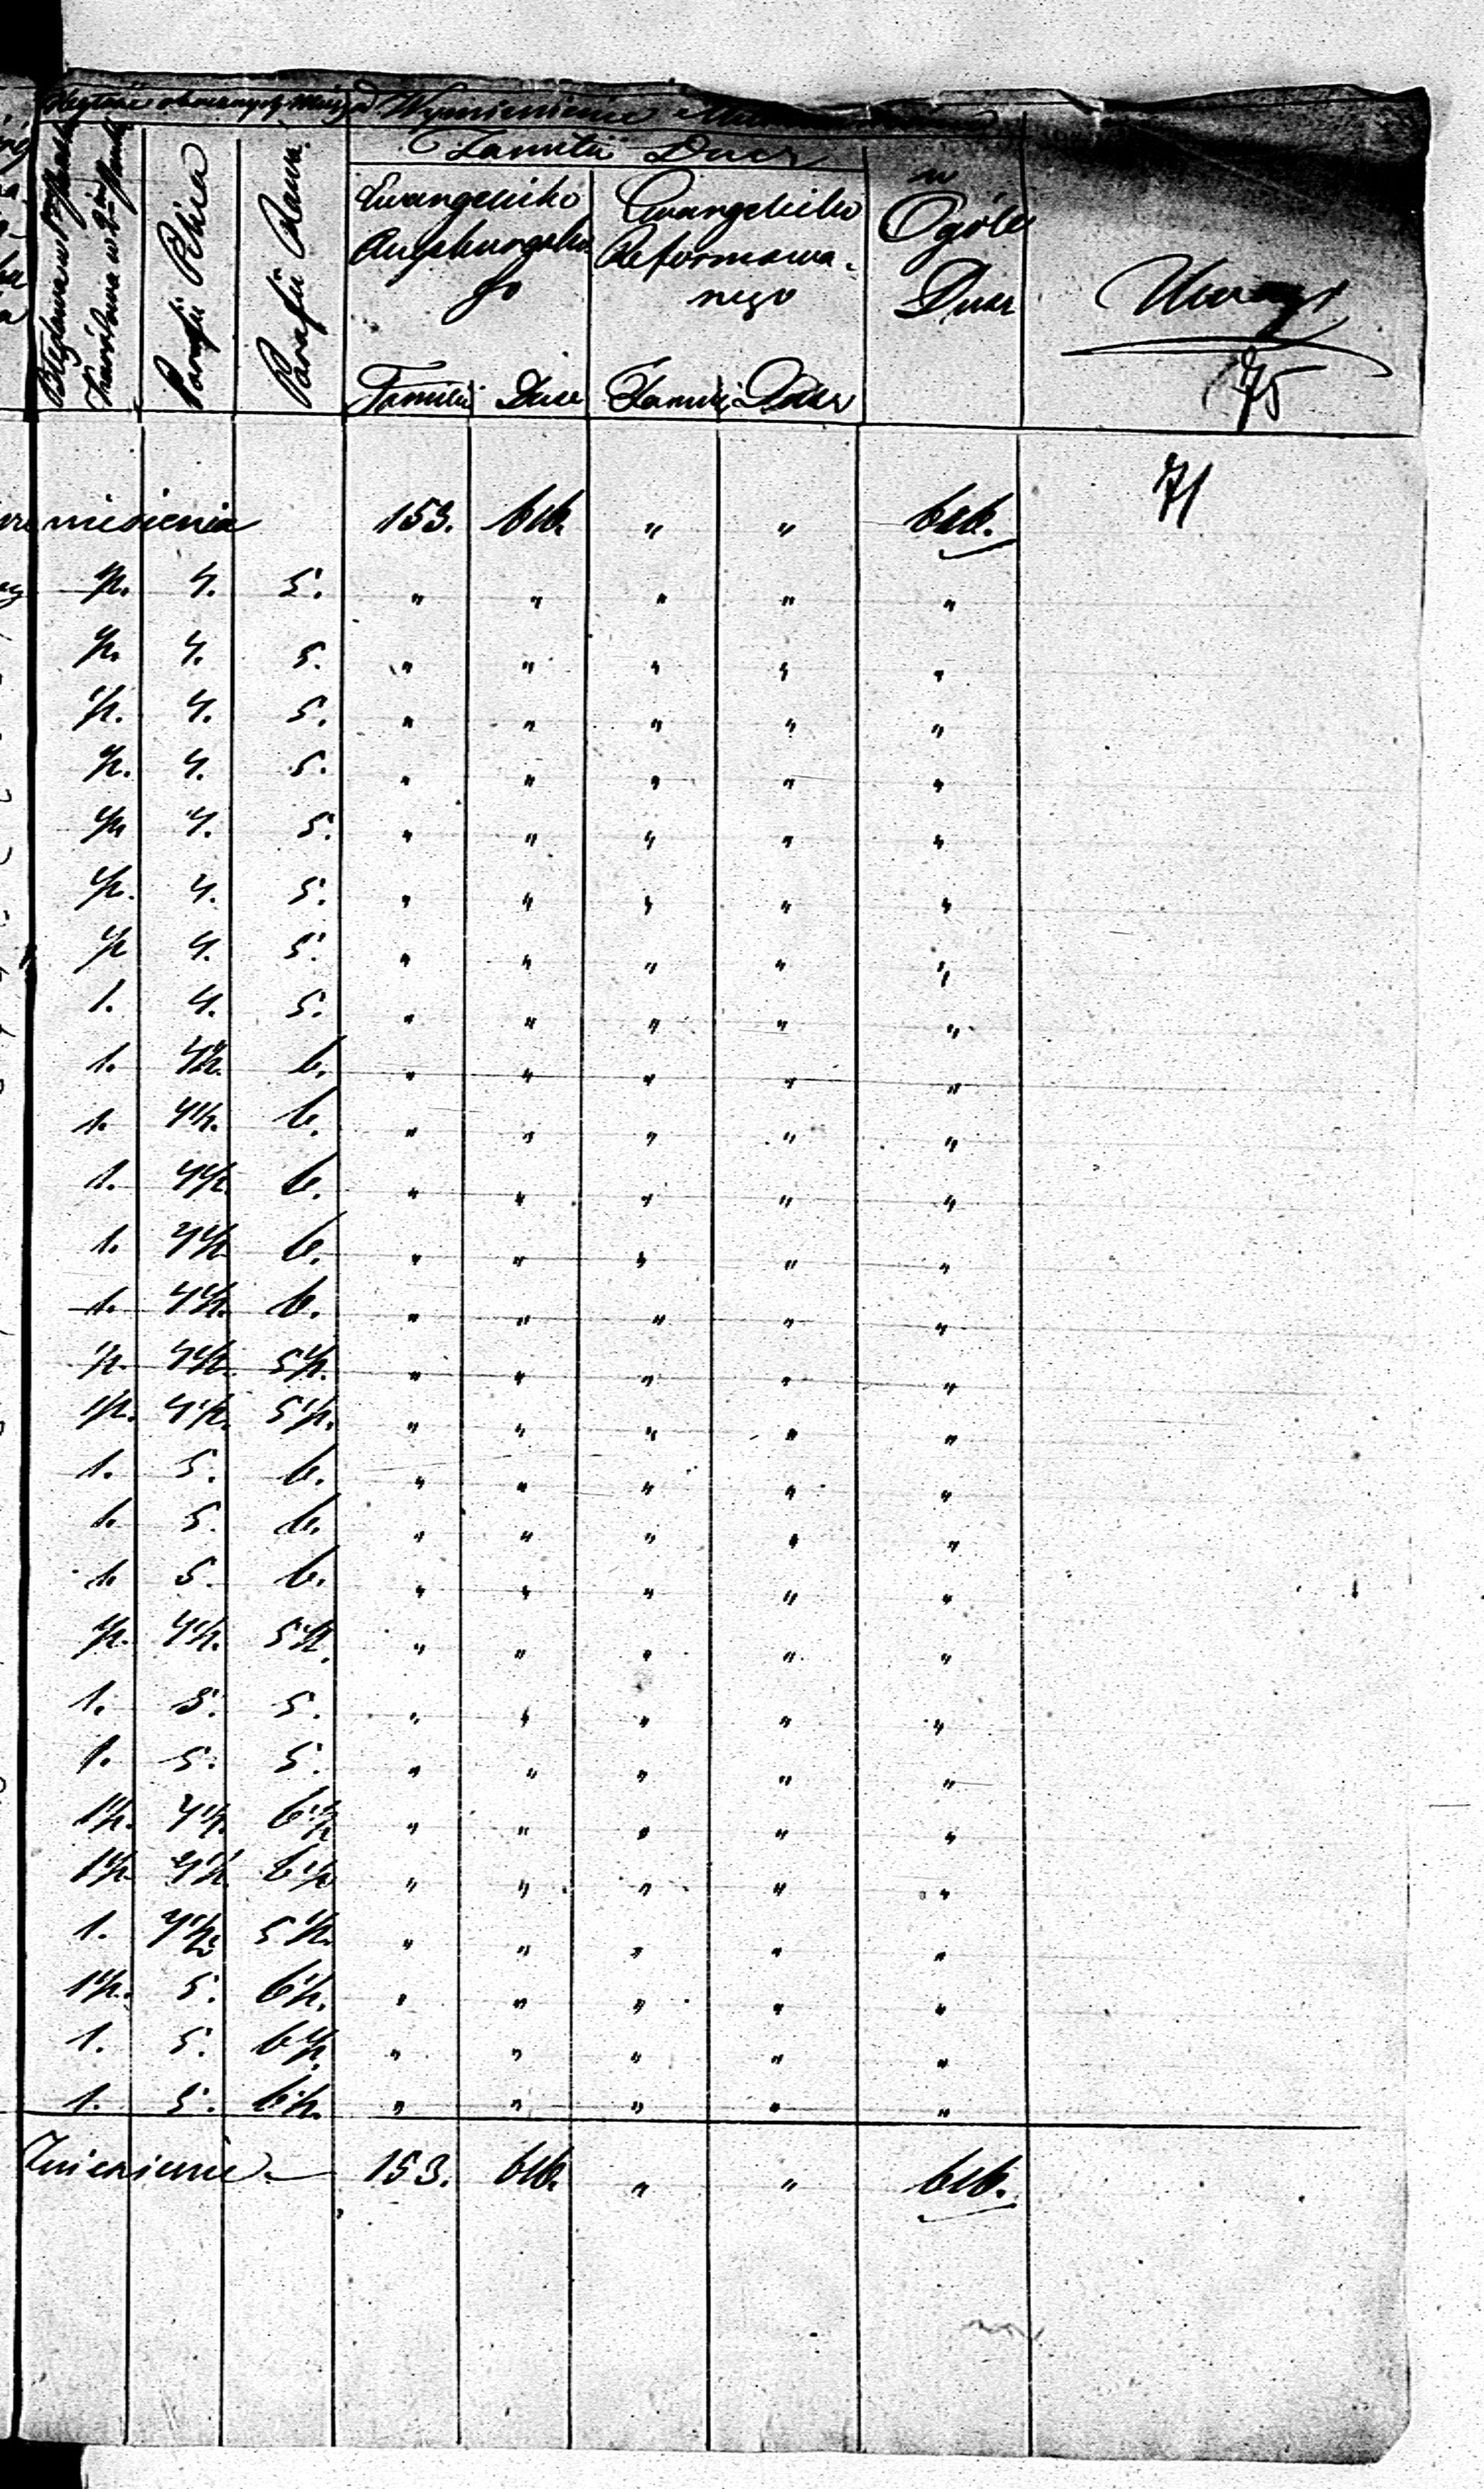 Wymienienie
Familii Dusz
Parafii Parafii
Ewangelicko Augsburgskie go
Ewangelicko Reformowa- nego
w Ogóle Dusz
Uwagi
75
Familii Dusz Familii Dusz
71
niesienia 153. 616. " " 616.
1/2. 4. 5. " " " " "
1/2. 4. 5. " " " " "
1/2. 4. 5. " " " " "
1/2. 4. 5. " " " " "
1/2 4. 5. " " " " "
1/2. 4. 5. " " " " "
1/2 4. 5. " " " " "
1. 4. 5. " " " " "
1. 4 1/2. 6. " " " " "
1. 4 1/2. 6. " " " " "
1. 4 1/2. 6. " " " " "
1. 4 1/2 6. " " " " "
1. 4 1/2. 6. " " " " "
1/2. 4 1/2. 5 1/2. " " " " "
1/2. 4 1/2. 5 1/2. " " " " "
1. 5. 6. " " " " "
1. 5. 6. " " " " "
1. 5. 6. " " " " "
1/2. 4 1/2. 5 1/2. " " " " "
1. 5. 5. " " " " "
1. 5. 5. " " " " "
1 1/2. 4 1/2. 6 1/2 " " " " "
1 1/2. 4 1/2. 6 1/2 " " " " "
1. 4 1/2 5 1/2. " " " " "
1 1/2. 5. 6 1/2. " " " " "
1. 5. 6 1/2. " " " " "
1. 5. 6 1/2. " " " " "
153. 616. " " 616.